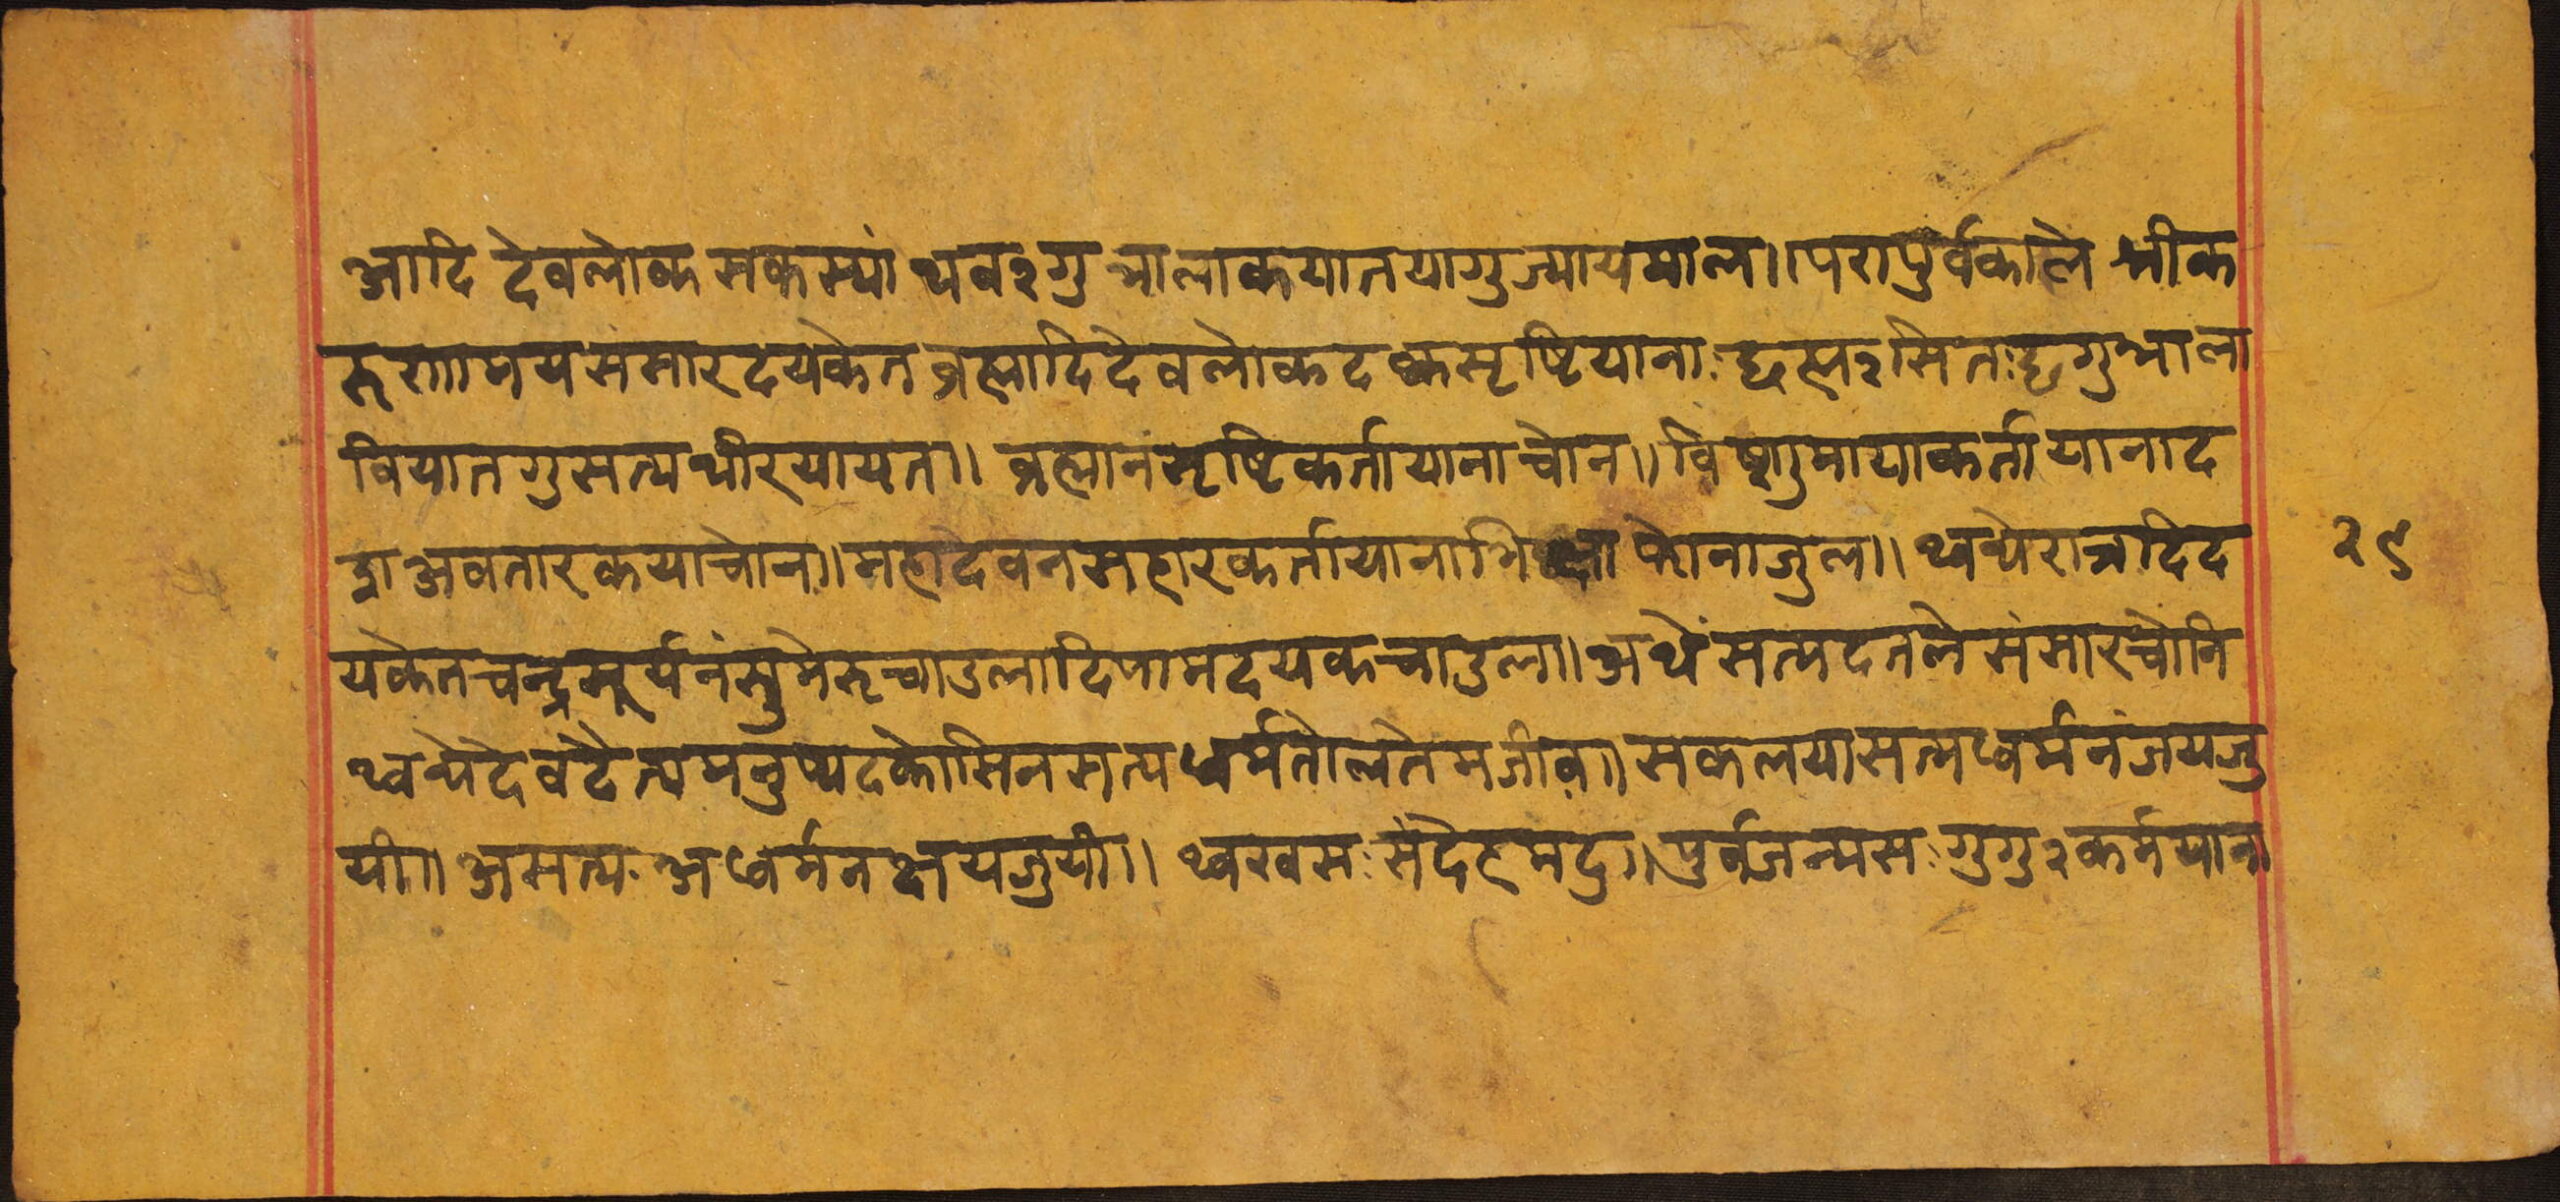 आदि देवलोक सकस्यां थव२गु भालाकयातयागुज्यायमाल॥परापुर्वकाले श्रीक
रुणामय संसारदयकेत ब्रह्मादिदेवलोकदक्कसृष्टियानाः ह्यह्म२सितःह्यगुभाला
बियातगुसत्यथीरयायत॥ ब्रह्मानं सृष्टिकर्तायानाचोन॥विष्णुमायाकर्तायानाद
श अवतारकयाचोन॥महादेवनसंहारकर्तायानाभिक्षा फोनाजुल॥ थ्वथ्येरात्रदिद
यकेत चन्द्रसूर्यनंसुमेरुचाउलादिपामदयकचाउल॥अथें सत्यदतले संसारचोनि
थ्वथ्ये देवदैत्यमनुष्यदकोसिनसत्यधर्मतोलतेमजीव॥ सकलयासत्यधर्मनंजयजु
यी॥ असत्य अधर्मन क्षयजुयी॥ थ्वखसः संदेहमदु॥पुर्वजन्मसः गुगु२कर्मयान
२९